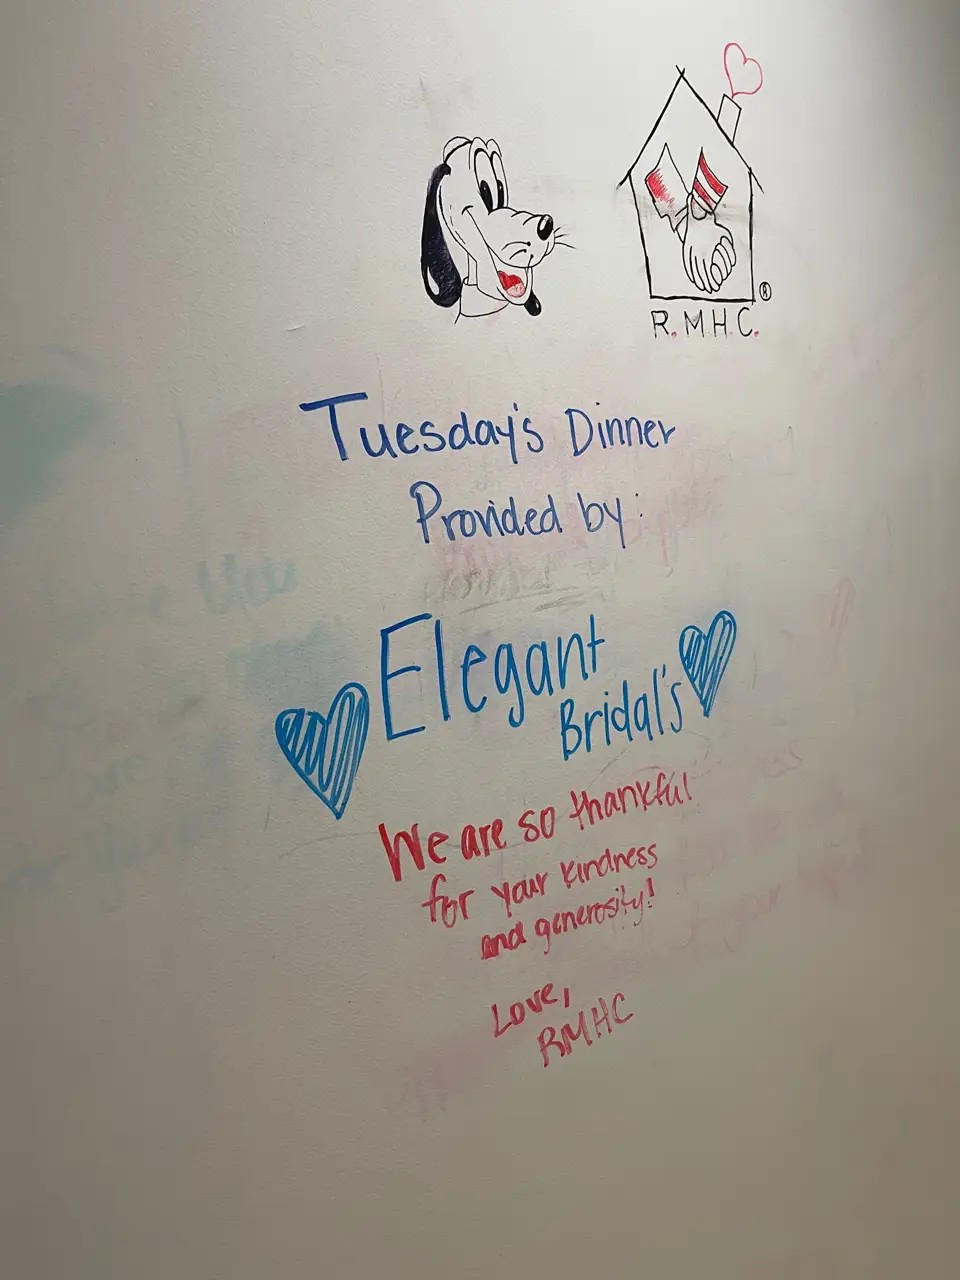 ®
R.M.H.C.
Tuesday's Dinner
Provided by:
Elegant
Bridal's
We are so thankful
for your kindness
and generosity!
Love,
RMHC